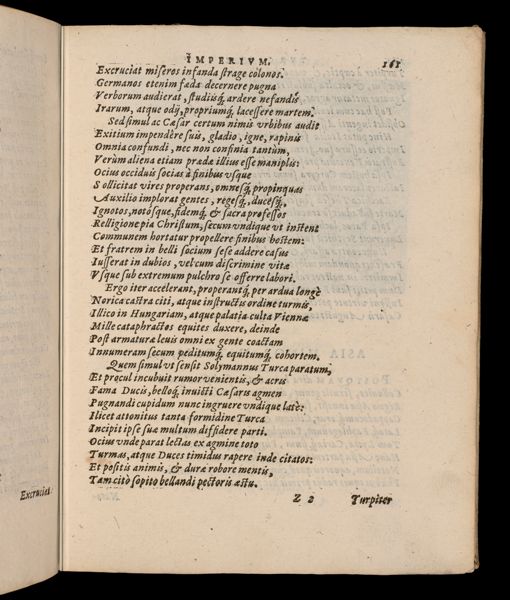 IMPERIVM. 161
Excruciat miseros infanda strage colonos.
Germanos etenim fœda decernere pugna
Verborum audierat, studiisq́; ardere nefandis
Irarum, atque odij, propriumq́; lacessere martem.
Sed simul ac Cæsar certum nimis vrbibus audit
Exitium impendêre suis, gladio, igne, rapinis
Omnia confundi, nec non confinia tantùm,
Verùm aliena etiam prædæ illius esse maniplis:
Ocius occiduis socias à finibus vsque
Sollicitat vires properans, omnesq́; propinquas
Auxilio implorat gentes, regesq́;, ducesq́;,
Ignotos, notosque, fidemq́; & sacra professos
Relligione pia Christum, secum vndique vt instent
Communem hortatur propellere finibus hostem:
Et fratrem in belli socium sese addere casus
Iusserat in dubios, vel cum discrimine vitæ
Vsque sub extremum pulchro se offerre labori.
Ergo iter accelerant, properantq́; per ardua longè
Norica castra citi, atque instructis ordine turmis,
Illico in Hungariam, atque palatia culta Viennæ
Mille cataphractos equites duxere, deinde
Post armaturæ leuis omni ex gente coactam
Innumeram secum peditumq́; equitumq́; cohortem.
Quem simul vt sensit Solymannus Turca paratum,
Et procul incubuit rumor venientis, & acris
Fama Ducis, belloq́; inuicti Cæsaris agmen
Pugnandi cupidum nunc ingruere vndique latè:
Ilicet attonitus tanta formidine Turca
Incipit ipse suæ multum diffidere parti.
Ocius vnde parat lectas ex agmine toto
Turmas, atque Duces timidus rapere inde citatos:
Et positis animis, & duræ robore mentis,
Tam citò sopito bellandi pectoris æstu.
Z 2 Turpiter
Excruciat